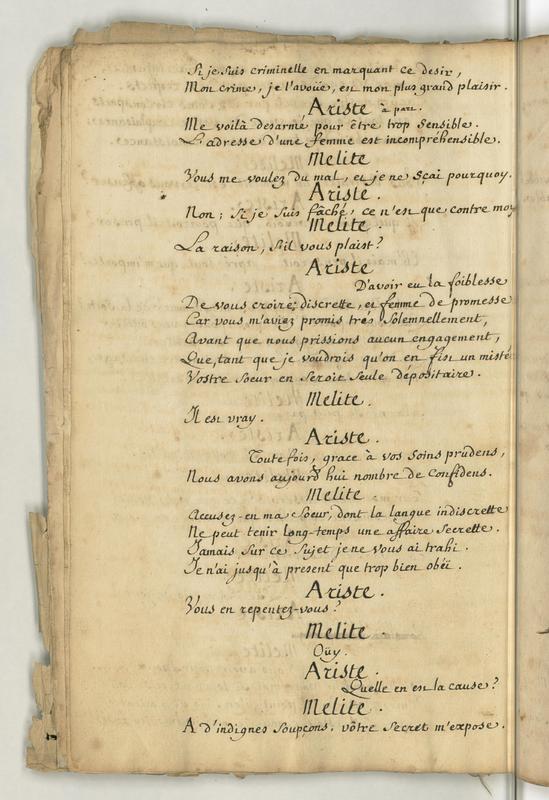 Si je suis criminelle en marquant ce desir,
Mon crime, je l'avoüe, est mon plus grand plaisir.
Ariste à part.
Me voilà desarmé pour être trop sensible.
L'adresse d'une femme est incomprehensible.
Melite
Vous me voulez du mal, et je ne sçai pourquoy.
Ariste.
Non; si je suis fâché, ce n'est que contre moy
Melite.
La raison, s'il vous plaist?
Ariste
D'avoir eu la foiblesse
De vous croire discrette, et femme de promesse
Car vous m'aviez promis trés solemnellement,
Avant que nous prissions aucun engagement,
Que, tant que je voudrois qu'on en fist un misté
Vostre soeur en seroit seule dépositaire.
Melite.
Il est vray.
Ariste.
Toutefois, grace à vos soins prudens,
Nous avons aujourd'hui nombre de confidens.
Melite
Accusez-en ma soeur, dont la langue indiscrette
Ne peut tenir long-temps une affaire secrette.
Jamais sur ce sujet je ne vous ai trahi.
Je n'ai jusqu'à present que trop bien obéi.
Ariste.
Vous en repentez-vous?
Melite.
Oüy.
Ariste.
Quelle en est la cause?
Melite.
A d'indignes soupçons, vôtre secret m'expose.